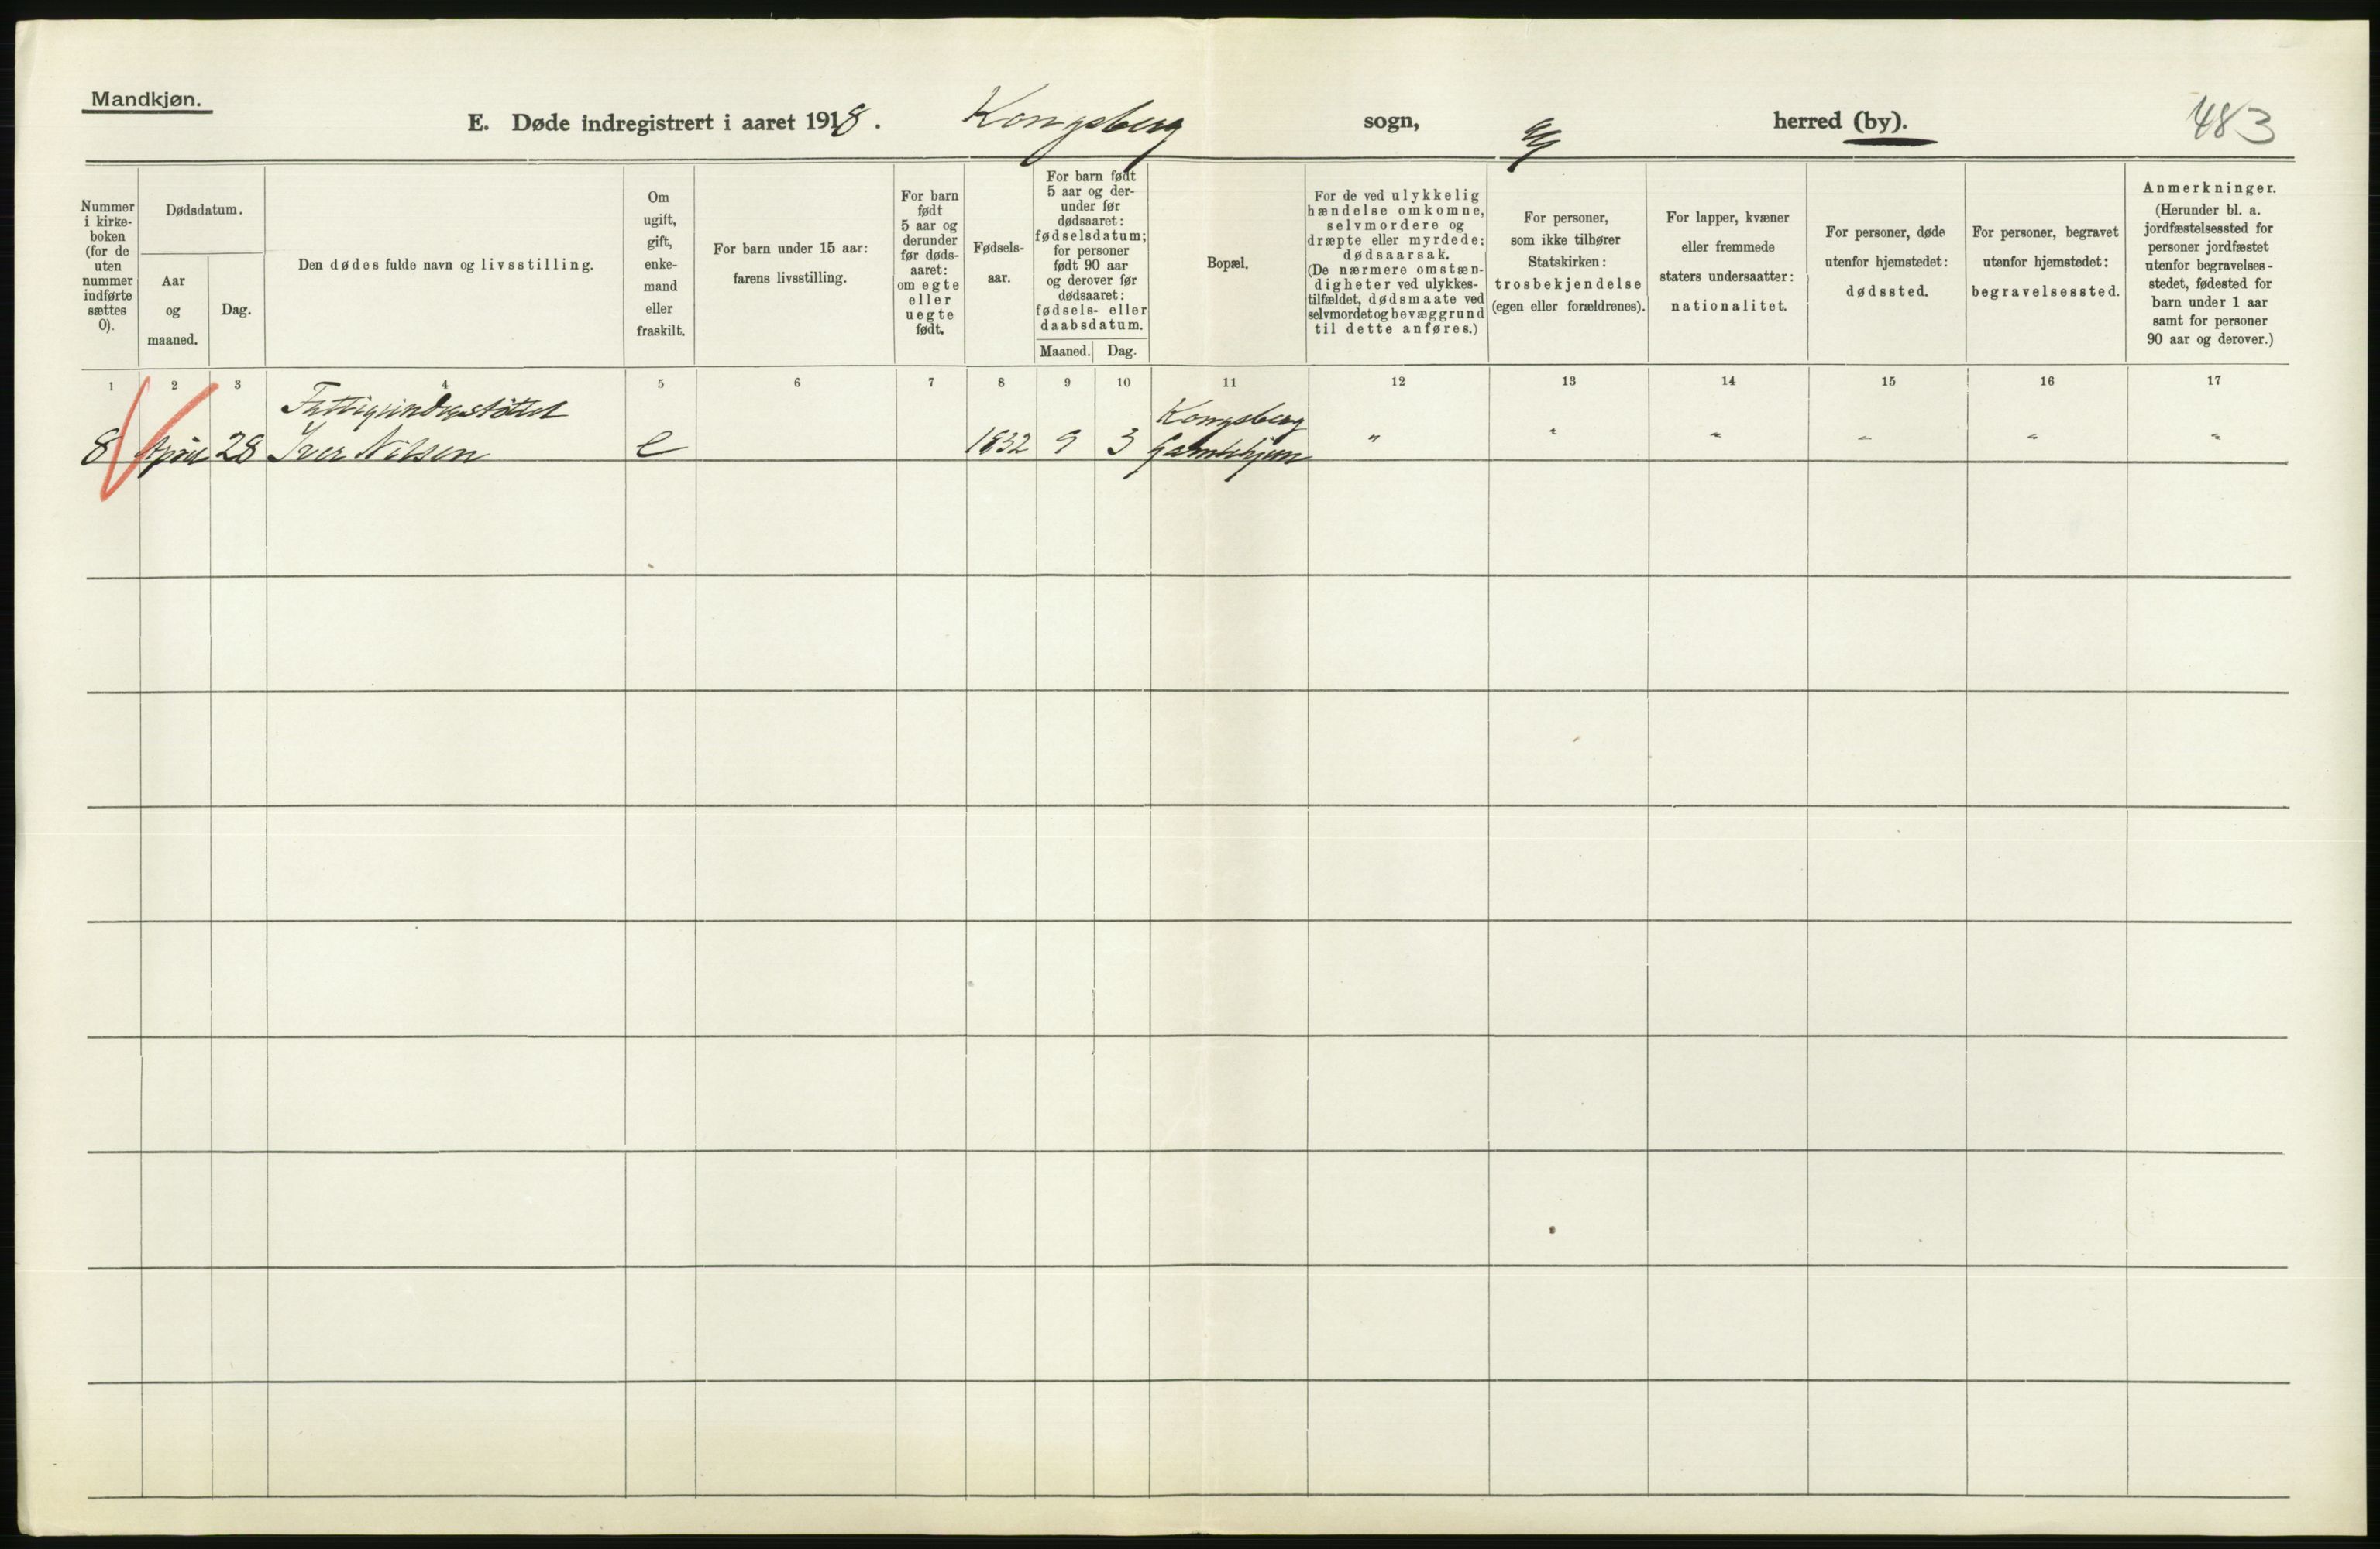 Mandkjøn.
E. Døde indregistrert i aaret 1918. Kongsberg sogn, herred (by).
483
Nummer
i kirke-
boken
(for de
uten
nummer
indførte
sættes
0).
Dødsdatum.
Aar
og
maaned.
Dag.
Den dødes fulde navn og livsstilling.
Om
ugift,
gift,
enke-
mand
eller
fraskilt.
For barn under 15 aar:
farens livsstilling.
For barn
født
5 aar og
derunder
før døds-
aaret:
om egte
eller
uegte
født.
Fødsels-
aar.
For barn født
5 aar og der-
under før
dødsaaret:
fødselsdatum;
for personer
født 90 aar
og derover før
dødsaaret:
fødsels- eller
daabsdatum.
Maaned. Dag.
Bopæl.
For de ved ulykkelig
hændelse omkomne,
selvmordere og
dræpte eller myrdede:
dødsaarsak.
(De nærmere omstæn-
digheter ved ulykkes-
tilfældet, dødsmaate ved
selvmordet og bevæggrund
til dette anføres.)
For personer,
som ikke tilhører
Statskirken:
trosbekjendelse
(egen eller forældrenes).
For lapper, kvæner
eller fremmede
staters undersaatter:
nationalitet.
For personer, døde
utenfor hjemstedet:
dødssted.
For personer, begravet
utenfor hjemstedet:
begravelsessted.
Anmerkninger.
(Herunder bl. a.
jordfæstelsessted for
personer jordfæstet
utenfor begravelses-
stedet, fødested for
barn under 1 aar
samt for personer
90 aar og derover.)
1 2 3 4 5 6 7 8 9 10 11 12 13 14 15 16 17
Kongsberg
8 April 28 Iver Nilsen e 1832 9 3 Gamlehjem " " " " " "